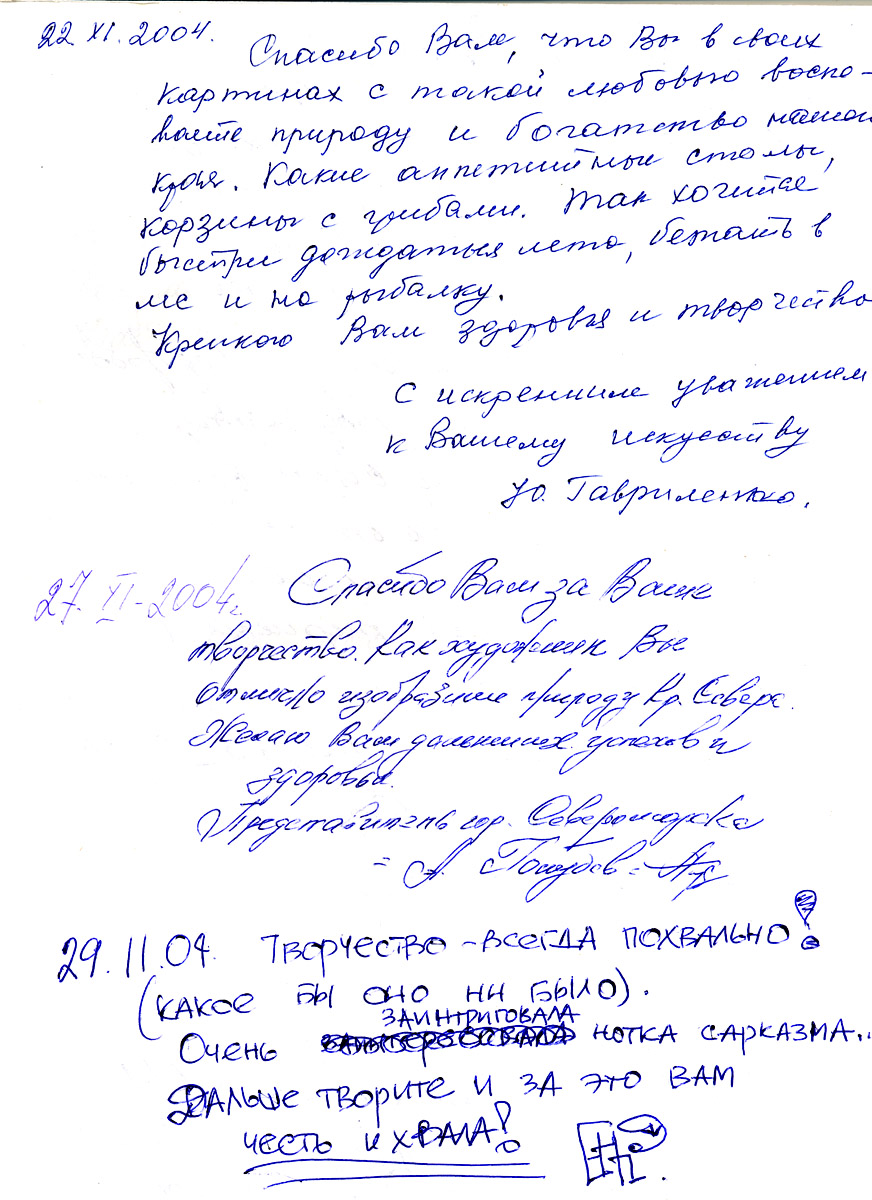 22.XI.2004.
Спасибо Вам, что Вы в своих
картинах с такой любовью воспе-
ваете природу и богатство нашего
края. Какие аппетитные столы,
корзины с грибами. Так хочется
быстрее дождаться лета, бежать в
лес и на рыбалку.
Крепкого Вам здоровья и творчества
С искренним уважением
к Вашему искусству
Ю. Гавриленко.
27.XI-2004г.
Спасибо Вам за Ваше
творчество. Как художник Вы
отлично изобразили природу Кр. Севера.
Желаю Вам дальнейших успехов и
здоровья.
Представитель гор. Североморска
= А.
29.11.04. Творчество - всегда похвально!
(какое бы оно ни было).
заинтриговала
Очень нотка сарказма..
Дальше творите и за это вам
честь и хвала!